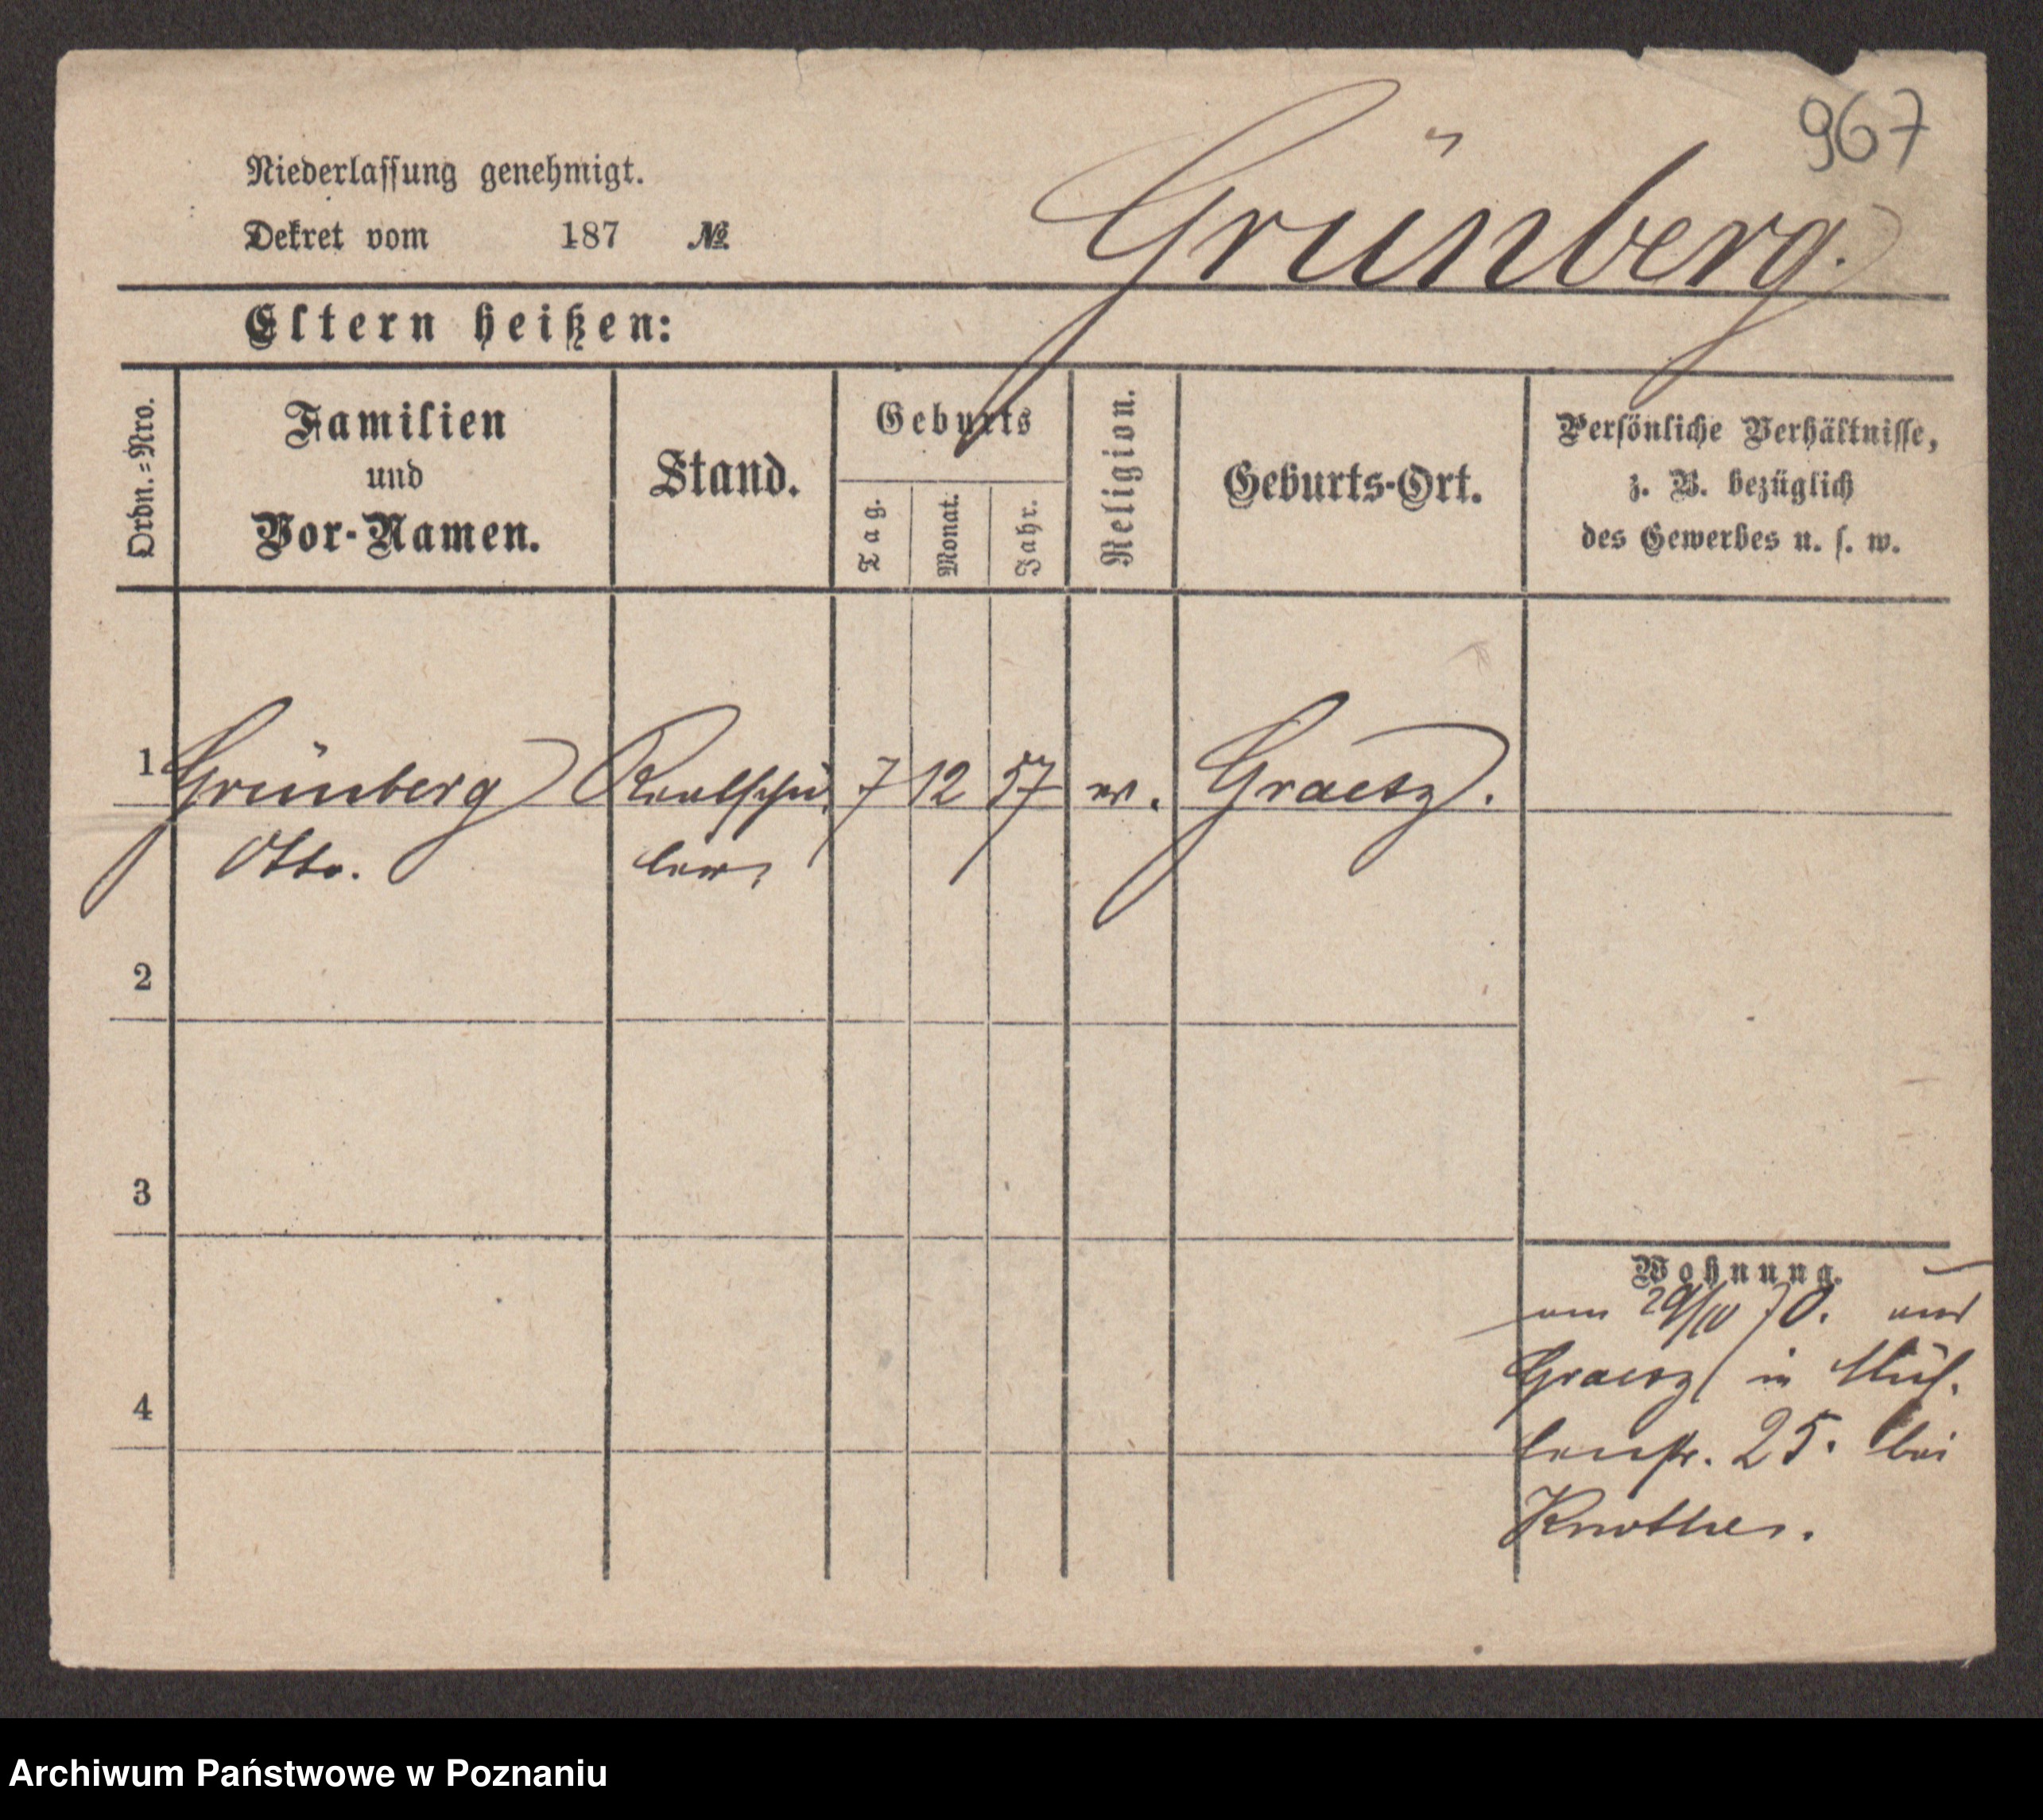 967
Niederlassung genehmigt.
Grünberg.
Dekret vom 187 №
Eltern heißen:
Ordn.=Nro.
Familien
und
Vor-Namen.
Stand.
Geburts
Tag.
Monat.
Jahr.
Religion.
Geburts-Ort.
Persönliche Verhältnisse,
z. B. bezüglich
des Gewerbes u. s. w.
1 Grünberg Realschü 7 12 57 Graetz.
Otto. ler
2
3
Wohnung.
70. aus
Graetz in Müh-
4
lenstr. 25. bei
Knothe.
Archiwum Państwowe w Poznaniu